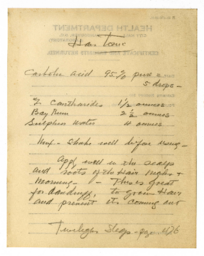 HEALTH DEPARTMENT
Hair Tonic
Carbolic Acid 95%
5 drops
T. Cantharides 1/2 ounces
Bay Rum 2 1/2 ounces
Sulphur water 10 ounces
Mix - Shake well before using -
Apply well in the scalp
and roots of the Hair night &
Morning - This is great
for dandruff, to grow Hair
and prevent its coming out